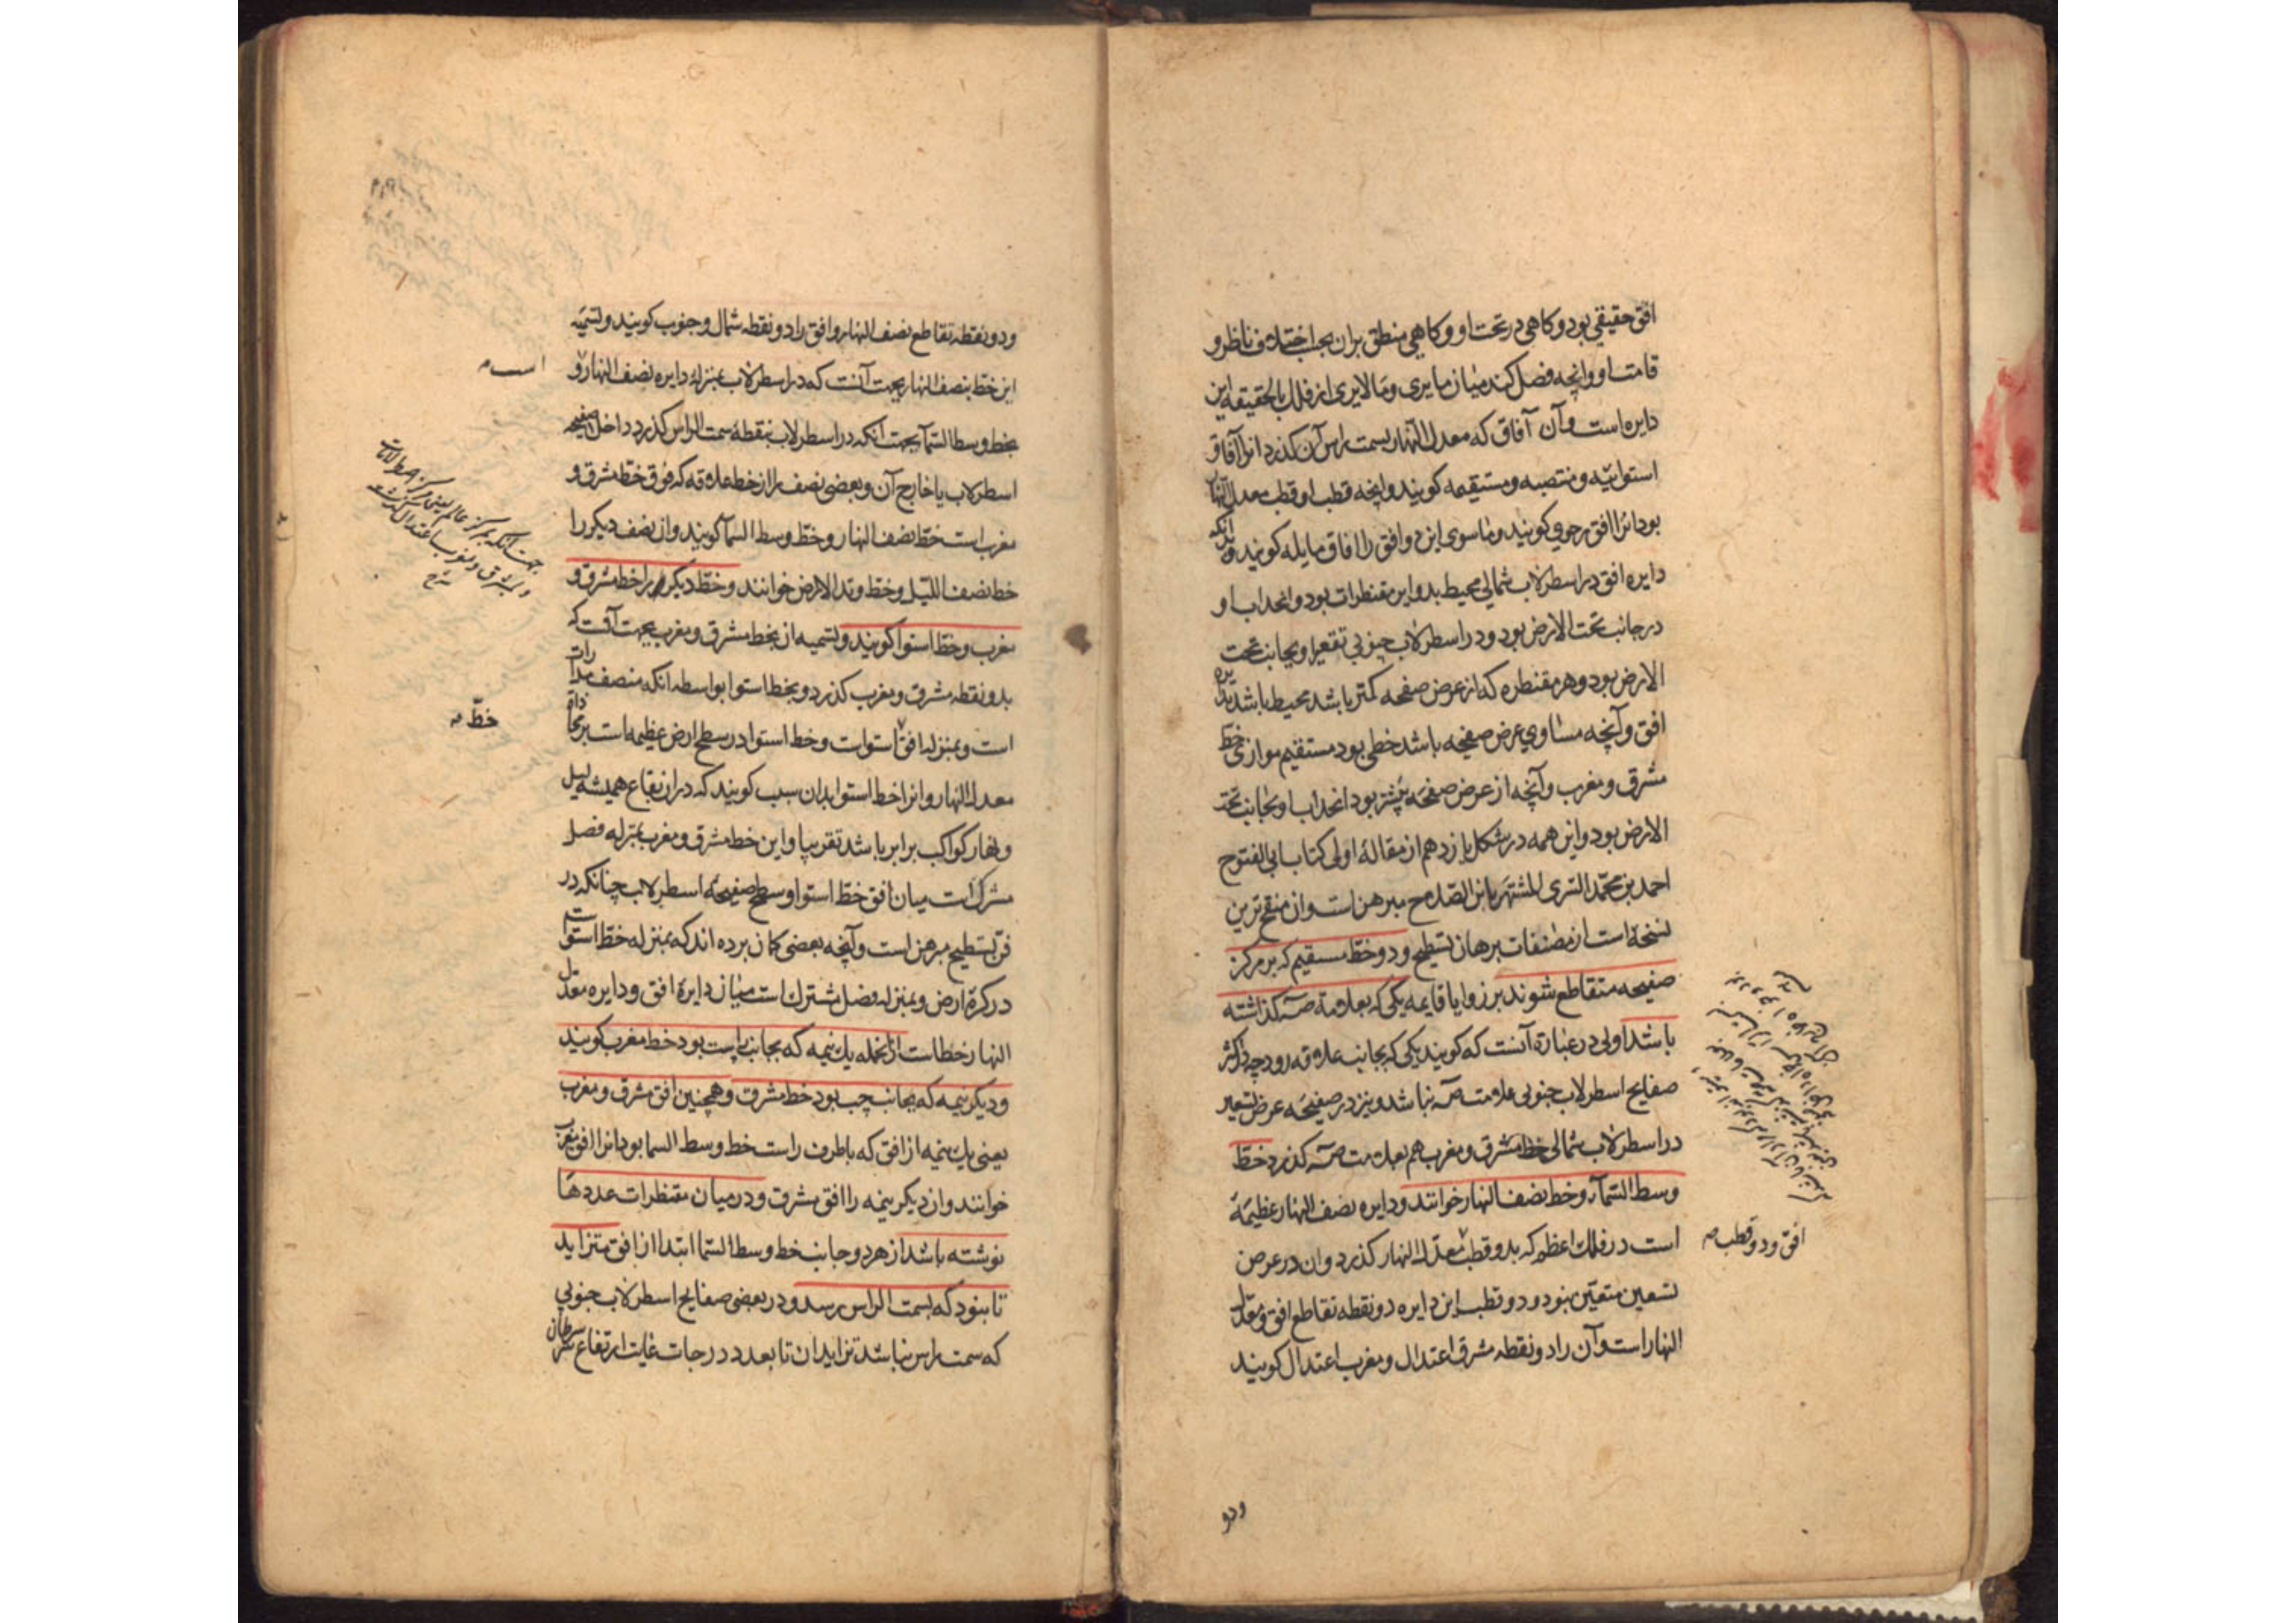 افق حقیقی بود و کاهی در تحت او و کاهی منطبق بران بحسب اختلاف ناظر و
قامت او و انچه فصل کند میان ما یری و ما لا یری از فلک بالحقیقه این
دایره است و آن آفاق که معدل النهار بسمت راس آن کذرد انرا آفاق
استوائیه و منتصبه و مستقیمه کویند و انچه قطب او قطب معدل النهار
بود انرا افق رحوی کویند و ما سوی این دو افق را افاق مایله کویند و
دایره افق در اسطرلاب شمالی محیط بدوایر مقنطرات بود و انحداب او
در جانب تحت الارض بود و در اسطرلاب جنوبی تقعیر او بجانب تحت
الارض بود و هر مقنطره که از عرض صفحه کمتر باشد محیط باشد بدایره
افق و آنچه مساوی عرض صفیحه باشد خطی بود مستقیم موازی خط
مشرق و مغرب و آنچه از عرض صفحه بیشتر بود انحداب او بجانب تحت
الارض بود و این همه در شکل یازدهم از مقالهٔ اولی کتاب ابی الفتوح
احمد بن محمد السری المشتهر بابن الصلاح مبرهن است و ان منقح ترین
نسخهٔ است از مصنفات برهان تسطیح و دو خط مستقیم که بر مرکز
صفیحه متقاطع شوند بر زوایا قایمه یکی که بعلامة صه کذاشته
باشد اولی در عبارة آنست که کویند یکی که بجانب علاقه رود چه در اکثر
صفایح اسطرلاب جنوبی علامت صه نباشد و نیز در صفیحه عرض تسعین
در اسطرلاب شمالی خط مشرق و مغرب هم بعلامت صه کذرد خط
وسط السماء و خط نصف النهار خوانند و دایره نصف النهار عظیمهٔ
است در فلک اعظم که بدو قطب معدل النهار کذرد و ان در عرض
افق و دو قطب
تسعین متعین نبود و دو قطب این دایره دو نقطه تقاطع افق و معدل
النهار است و آن را دو نقطه مشرق اعتدال و مغرب اعتدال کویند
ودو
ودو نقطه تقاطع نصف النهار و افق را دو نقطه شمال و جنوب کویند و تسمیه
این خط بنصف النهار بجهت آنست که در اسطرلاب بمنزلهٔ دایره نصف النهار و
بخط وسط السمآ بجهت انکه در اسطرلاب بنقطهٔ سمت الراس کذرد داخل صفیحه
اسطرلاب یا خارج آن و بعضی نصف را از خط علاقه که فوق خط مشرق و
مغرب است خط نصف النهار و خط وسط السمآ کویند و ان نصف دیکر را
خط نصف اللیل و خط وتد الارض خوانند و خط دیکر را خط مشرق و
مغرب و خط استوا کویند و تسمیه ان بخط مشرق و مغرب بجهت آنست که
بدو نقطه مشرق و مغرب کذرد و بخط استوا بواسطه انکه منصف مدارات
خط
است و بمنزله افق استواست و خط استوا در سطح ارض عظیمه است بر محاذاة
معدل النهار و انرا خط استوا بدان سبب کویند که در ان بقاع همیشه لیل
و نهار کواکب برابر باشد تقریبا و این خط مشرق و مغرب بمنزله فصل
مشترک است میان افق خط استوا و سطح صفیحهٔ اسطرلاب چنانکه در
فن تسطیح مبرهن است و آنچه بعضی کمان برده اند که بمنزله خط استواست
در کرهٔ ارض و بمنزله فصل مشترک است میان دایرهٔ افق و دایره معدل
النهار خطاست ازانجمله یک نیمه که بجانب راست بود خط مغرب کویند
و دیکر نیمه که بجانب چپ بود خط مشرق و همچنین افق مشرق و مغرب
یعنی یک نیمه از افق که باطرف راست خط وسط السما بود انرا افق مغرب
خوانند و ان دیکر نیمه را افق مشرق و در میان مقنطرات عددها
نوشته باشد از هر دو جانب خط وسط السما ابتدا از افق متزاید
تا بنود که بسمت الراس رسد و در بعضی صفایح اسطرلاب جنوبی
که سمت راس نباشد تزاید ان تا بعدد درجات غایت ارتفاع سرطان
جهت انکه بمرکز عالم یعنی مرکز اصطرلاب
و بمشرق و مغرب اعتدال کذشته